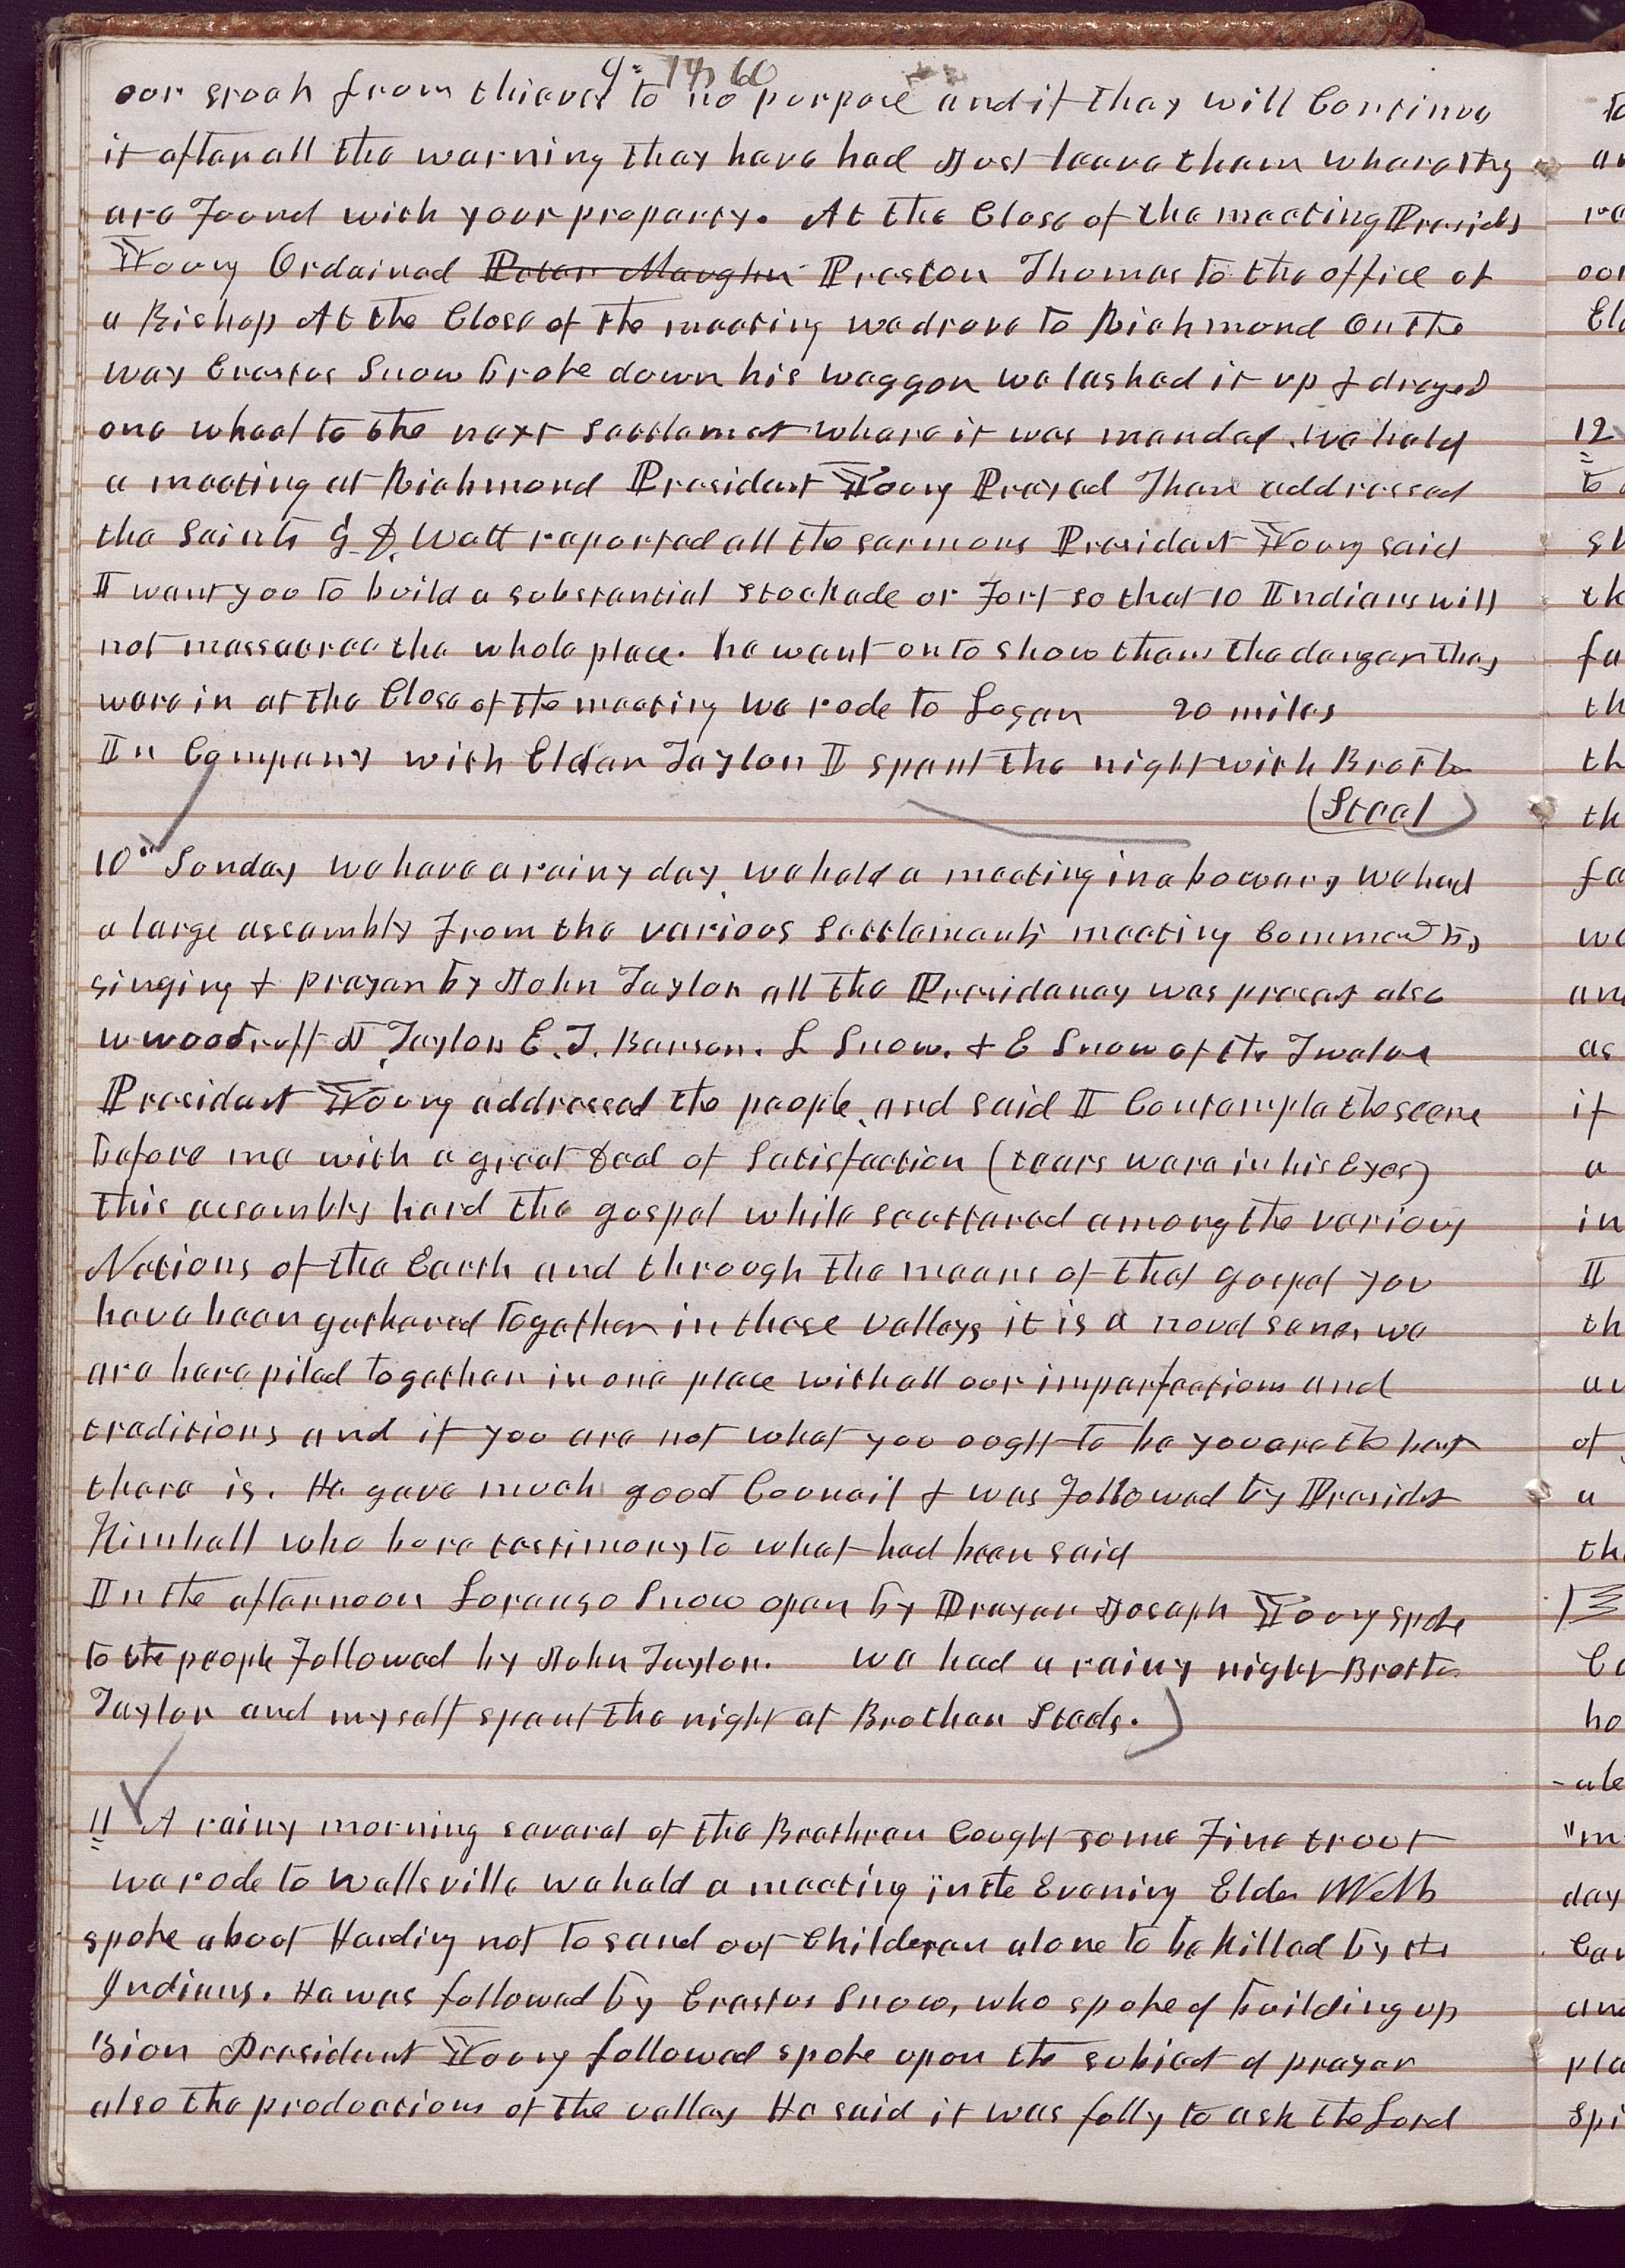 9= 1860
our stock from thieves to no purpose and if they will Continue
it after all the warning they have had Just leave them whare they
are found with your property. At the Close of the meeting Presidt
Young Ordained Peter Maughn Preston Thomas to the office of
a Bishop At the Close of the meeting we drove to Richmond On the
way Erastus Snow broke down his waggon we lashed it up & draged
one wheel to the next settlemet whare it was mended. we held
a meeting at Richmond President Young Prayed Then addressed
the Saints G. D. Watt reported all the sermons President Young said
I want you to build a substantial stockade or Fort so that 10 Indians will
not massacree the whole place. he went on to show them the danger they
were in at the Close of the meeting we rode to Logan 20 miles
In Company with Elder Taylor I spent the night with Brother
(Steel)
10" Sunday we have a rainy day we held a meeting in a bowery we had
a large assembly from the various settlements meeting Commend by
singing & prayer by John Taylor all the Presidency was preset also
W woodruff J Taylor E. T. Benson. L Snow. & E Snow of the Twelve
President Young addressed the people and said I Contemplate the scene
before me with a great deal of Satisfaction (tears were in his Eyes)
this assembly hard the gospel while scattered among the various
Nations of the Earth and through the means of that gospel you
have been gathered together in these valleys it is a novel sene. we
are here piled together in one place with all our imperfections and
traditions and if you are not what you ought to be you are the best
there is. He gave much good Council & was followed by Presidet
Kimball who bore testimony to what had been said
In the afternoon Loranzo Snow open by Prayer Joseph Young spoke
to the people followed by John Taylor. We had a rainy night Brother
Taylor and myself spent the night at Brother Steels.
11 A rainy morning several of the Brethren Cought some Fine trout
we rode to Wellsville we held a meeting in the Evening Elder Wells
spoke about Harding not to send out Childeren alone to be killed by the
Indians. He was followed by Erastus Snow, who spoke of building up
Zion President Young followed spoke upon the subject of prayer
also the productions of the valley He said it was folly to ask the Lord